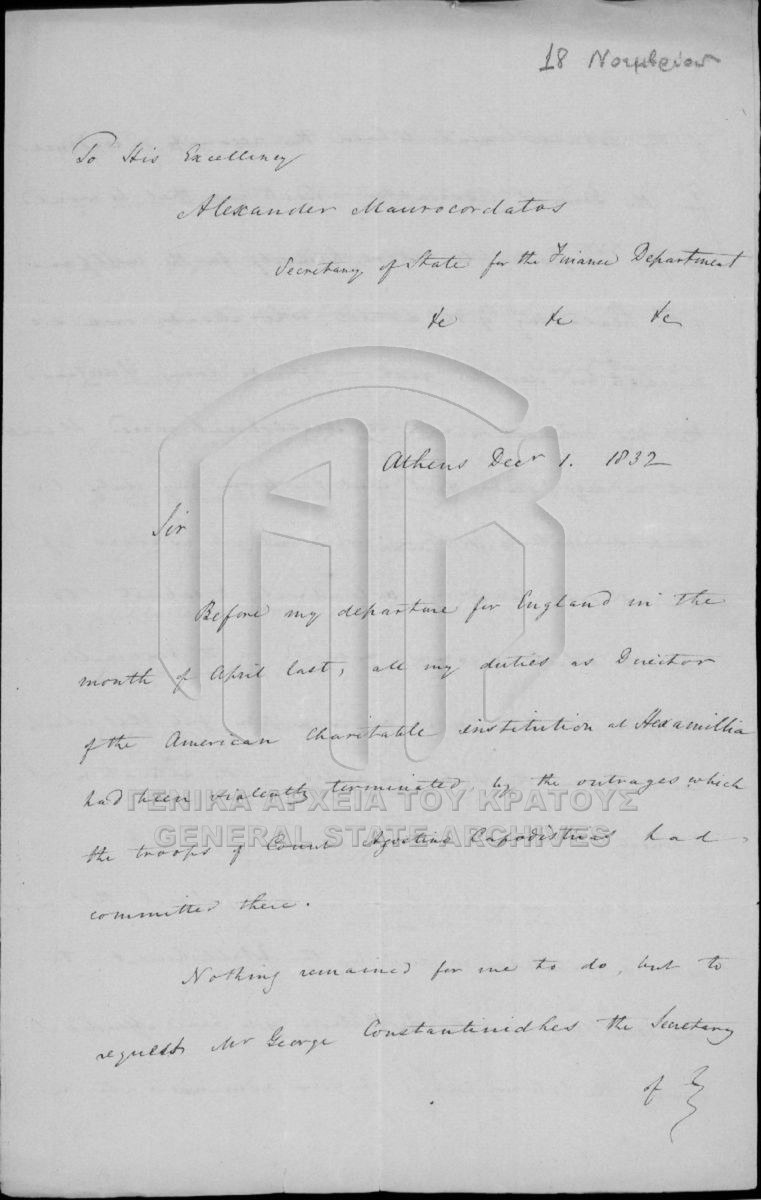 18 Νοεμβρίου
To His Excellency
Alexander Maurocordatos
Secretary of State for the Finance Department
&c &c &c
Athens Decr 1. 1832
Sir
Before my departure for England in the
month of April last, all my duties as Director
of the American Charitable institution at Hexamillia
had been violently terminated by the outrages which
ΓΕΝΙΚΑ ΑΡΧΕΙΑ ΤΟΥ ΚΡΑΤΟΥΣ
GENERAL STATE ARCHIVES
the troops of Count Agostino Capodistrias had
committed there.
Nothing remained for me to do, but to
request Mr George Constantinidhes the Secretary
of